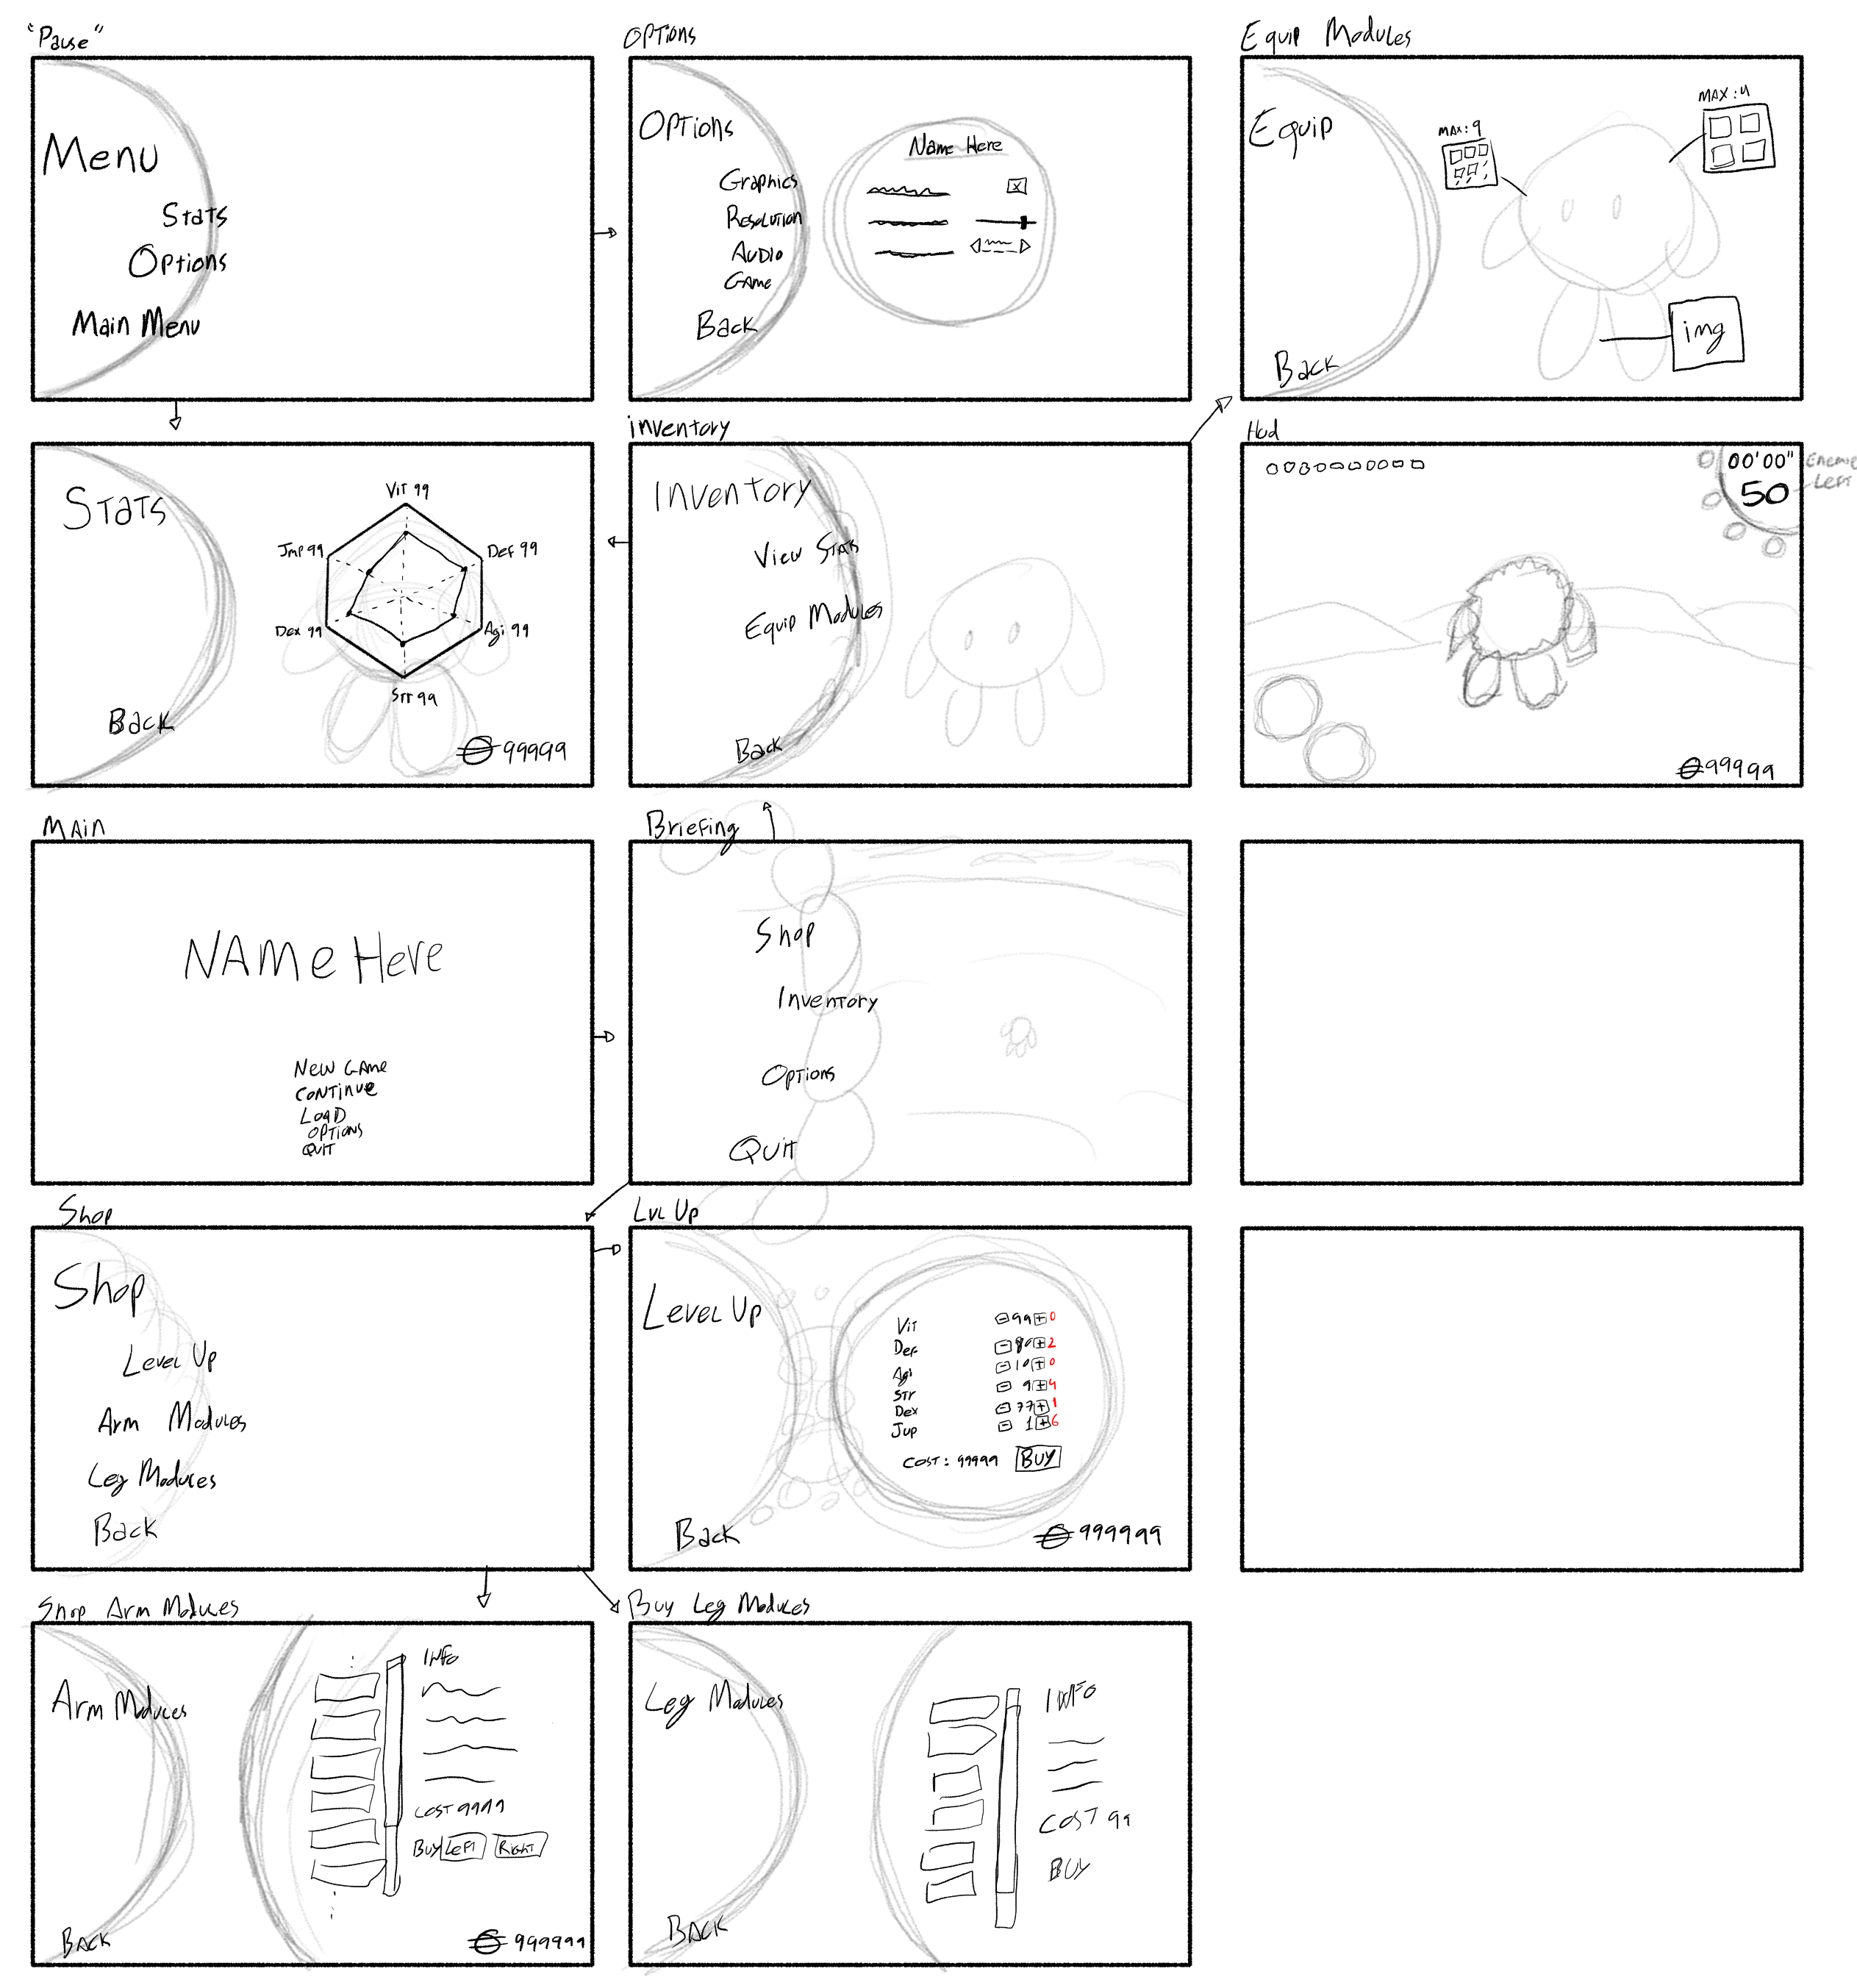 "Pause"
Menu
Stats
Options
Main Menu
Options
Options
Graphics
Resolution
Audio
Game
Back
Name Here
Equip Modules
Equip
Back
MAX: 9
MAX: 4
img
Stats
Back
Vit 99
Def 99
Agi 99
Str 99
Dex 99
Jmp 99
99999
inventory
Inventory
View Stats
Equip Modules
Back
Hud
00'00"
50
Enemie
Left
99999
Main
Name Here
New Game
Continue
Load
Options
Quit
Briefing
Shop
Inventory
Options
Quit
Shop
Shop
Level Up
Arm Modules
Leg Modules
Back
Lvl Up
Level Up
Back
Vit - 99 + 0
Def - 80 + 2
Agi - 10 + 0
Str - 9 + 4
Dex - 77 + 1
Jup - 1 + 6
Cost: 99999 Buy
999999
Shop Arm Modules
Arm Modules
Back
Info
Cost 9999
Buy Left Right
999999
Buy Leg Modules
Leg Modules
Back
Info
Cost 99
Buy